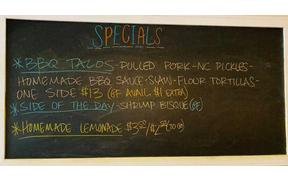 SPECIALS
*BBQ TACOS-PULLED PORK-NC PICKLES-
HOMEMADE BBQ SAUCE-SLAW-FLOUR TORTILLAS-
ONE SIDE $13 (GF AVAIL. $1 EXTRA)
*SIDE OF THE DAY-SHRIMP BISQUE (GF)
*HOMEMADE LEMONADE $3